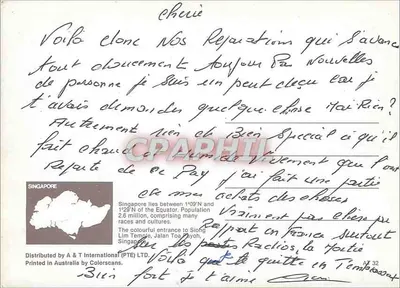 cherie
Voila donc nos Reparations qui s'avance
tout doucement toujour Pas Nouvelles
de personne je suis un peut deçu car je
t'avais demander quelque chose Mai Rien?
Autrement rien de Bien Special a qu'il
fait chaud et vivement que l'on
Reparte de ce Pay j'ai fait une partie
de mes achats des choses
vraiment pas cher par
Rapport en France surtout
sur les Radios, la
Voila je te quitte en T'embrassant
Bien fort je t'aime
CPAPHIL
SINGAPORE
Singapore lies between 1°09'N and
1°29'N of the Equator. Population
2.6 million, comprising many
races and cultures.
The colourful entrance to Siong
Lim Temple, Jalan Toa Payoh,
Singapore.
Distributed by A & T International (PTE) LTD.
Printed in Australia by Colorscans.
32